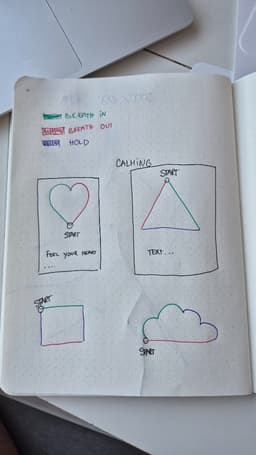 BREATH IN
BREATH OUT
HOLD
CALMING
START
START
FEEL YOUR HEART
....
TEXT...
START
START